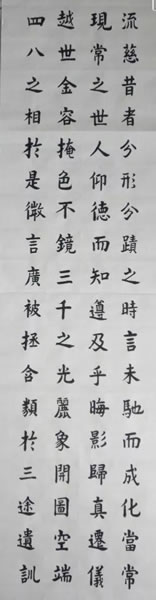 流慈昔者分形分蹟之時言未馳而成化當常
現常之世人仰德而知遵及乎晦影歸真遷儀
越世金容掩色不鏡三千之光麗象開圖空端
四八之相於是微言廣被拯含類於三途遺訓